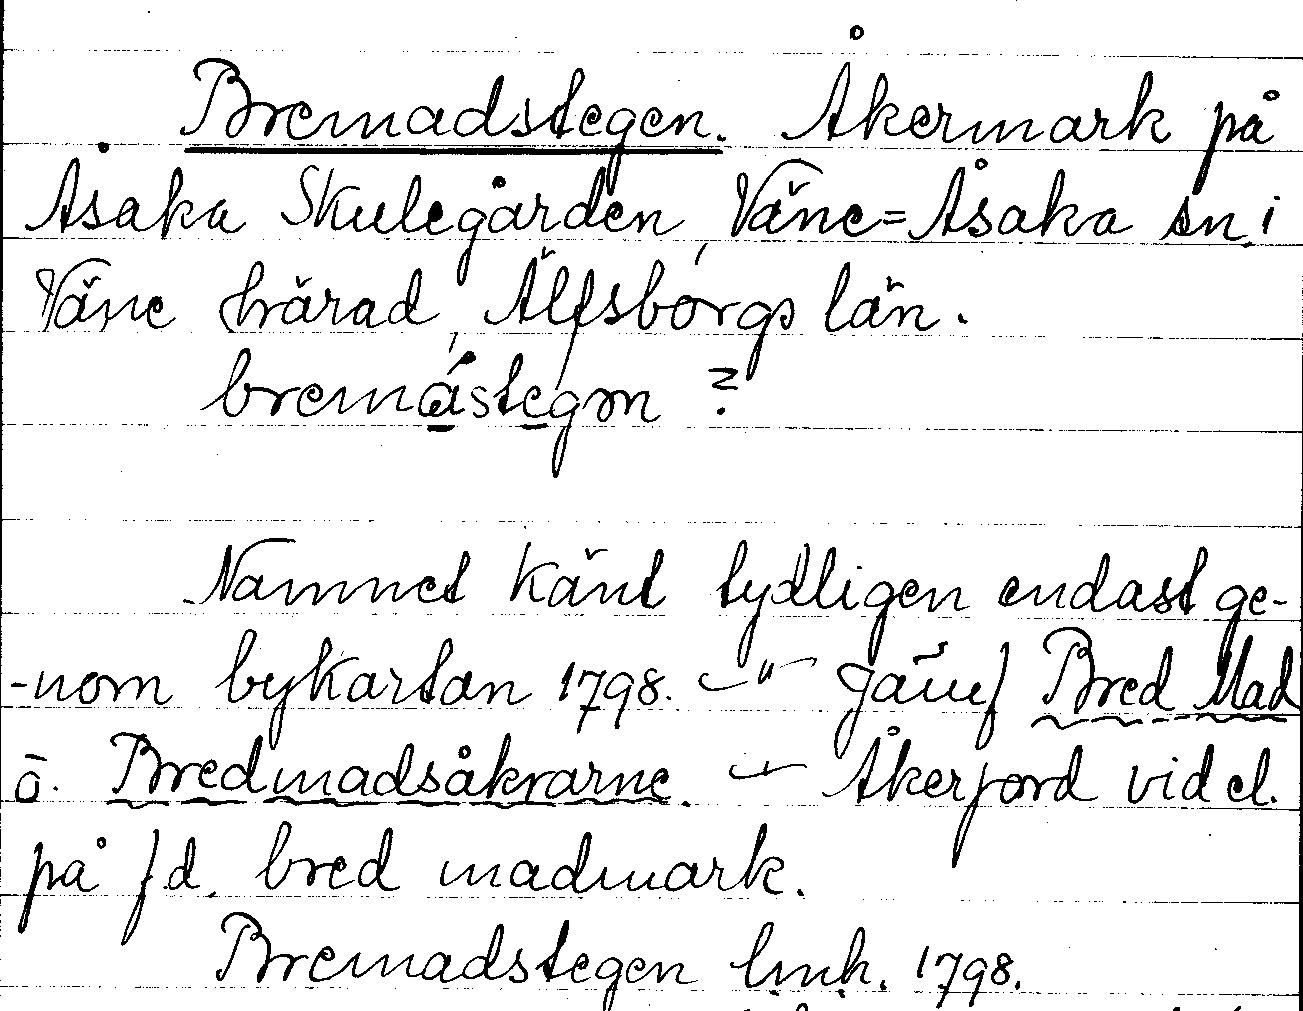 Bremadstegen. Åkermark på
Åsaka Skulegården, Väne=Åsaka sn. i
Väne härad, Älfsborgs län.
bremástegm ?
Namnet känt tydligen endast ge-
-nom bykartan 1798. —"— Jämf Bred Mad
o. Bredmadsåkrarne. — Åkerjord vid el.
på f d. bred madmark.
Bremadstegen lmh. 1798.